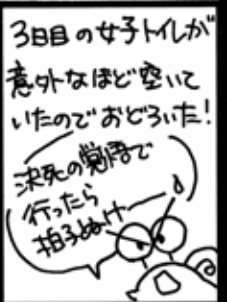 3日目の女子トイレが
意外なほど空いて
いたのでおどろいた!
決死の覚悟で
行ったら
拍子ぬけー